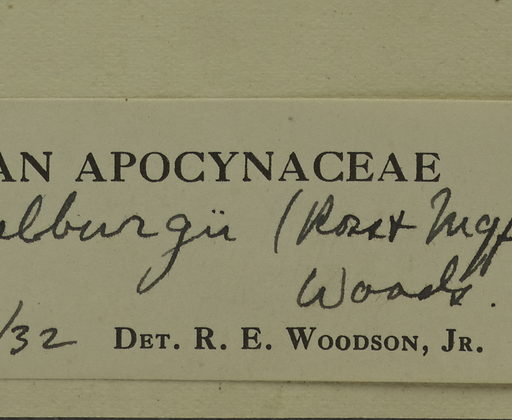 AN APOCYNACEAE
alburgii (Rose &
Woods.
/32 DET. R. E. WOODSON, JR.